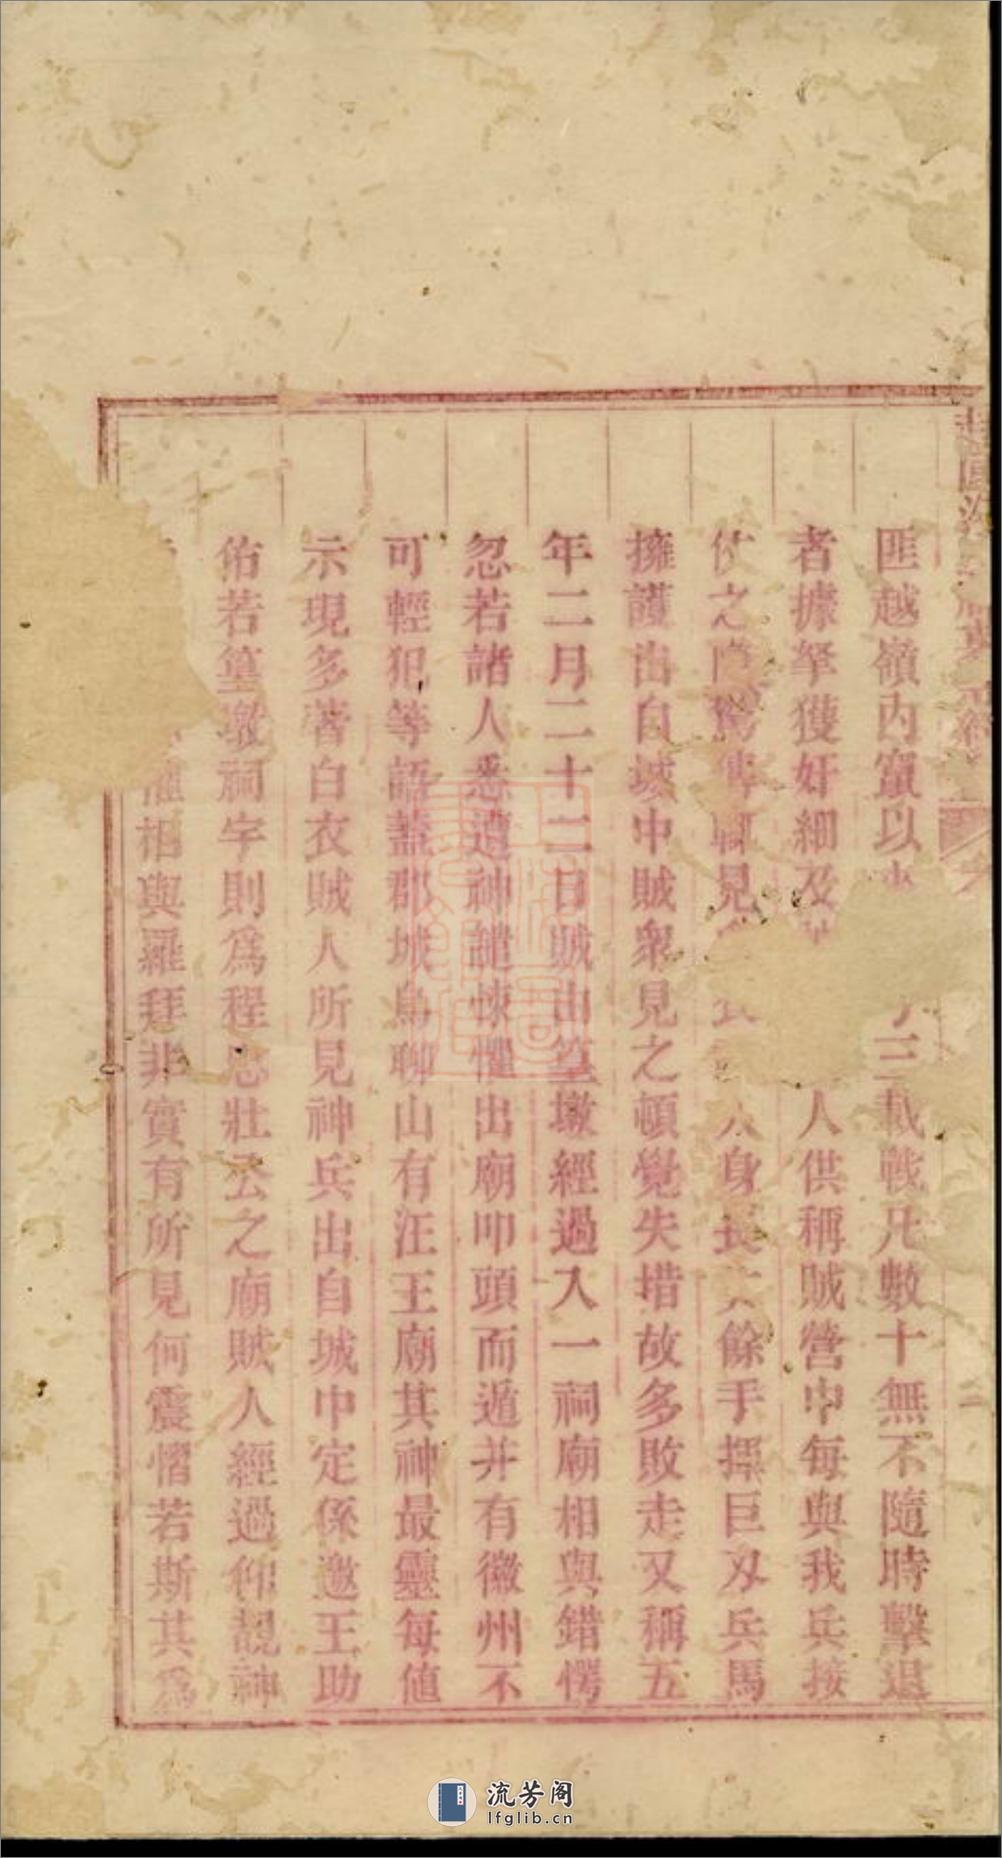 匪越嶺內竄以來三載戰凡數十無不隨時擊退
者據拏獲奸細及人供稱賊營中每與我兵接
仗之際見人身長餘手揮巨刄兵馬
擁護出自城中賊衆見之頓覺失措故多敗走又稱五
年二月二十二日賊由篁墩經過入一祠廟相與錯愕
忽若諸人悉遭神譴悚懼出廟叩頭而遁并有徽州不
可輕犯等語蓋郡城烏聊山有汪王廟其神最靈每値
示現多著白衣賊人所見神兵出自城中定係邀王助
佑若篁墩祠宇則爲程忠壯公之廟賊人經過仰覩神
相與羅拜非實有所見何震慴若斯其爲
流芳阁
lfglib.cn